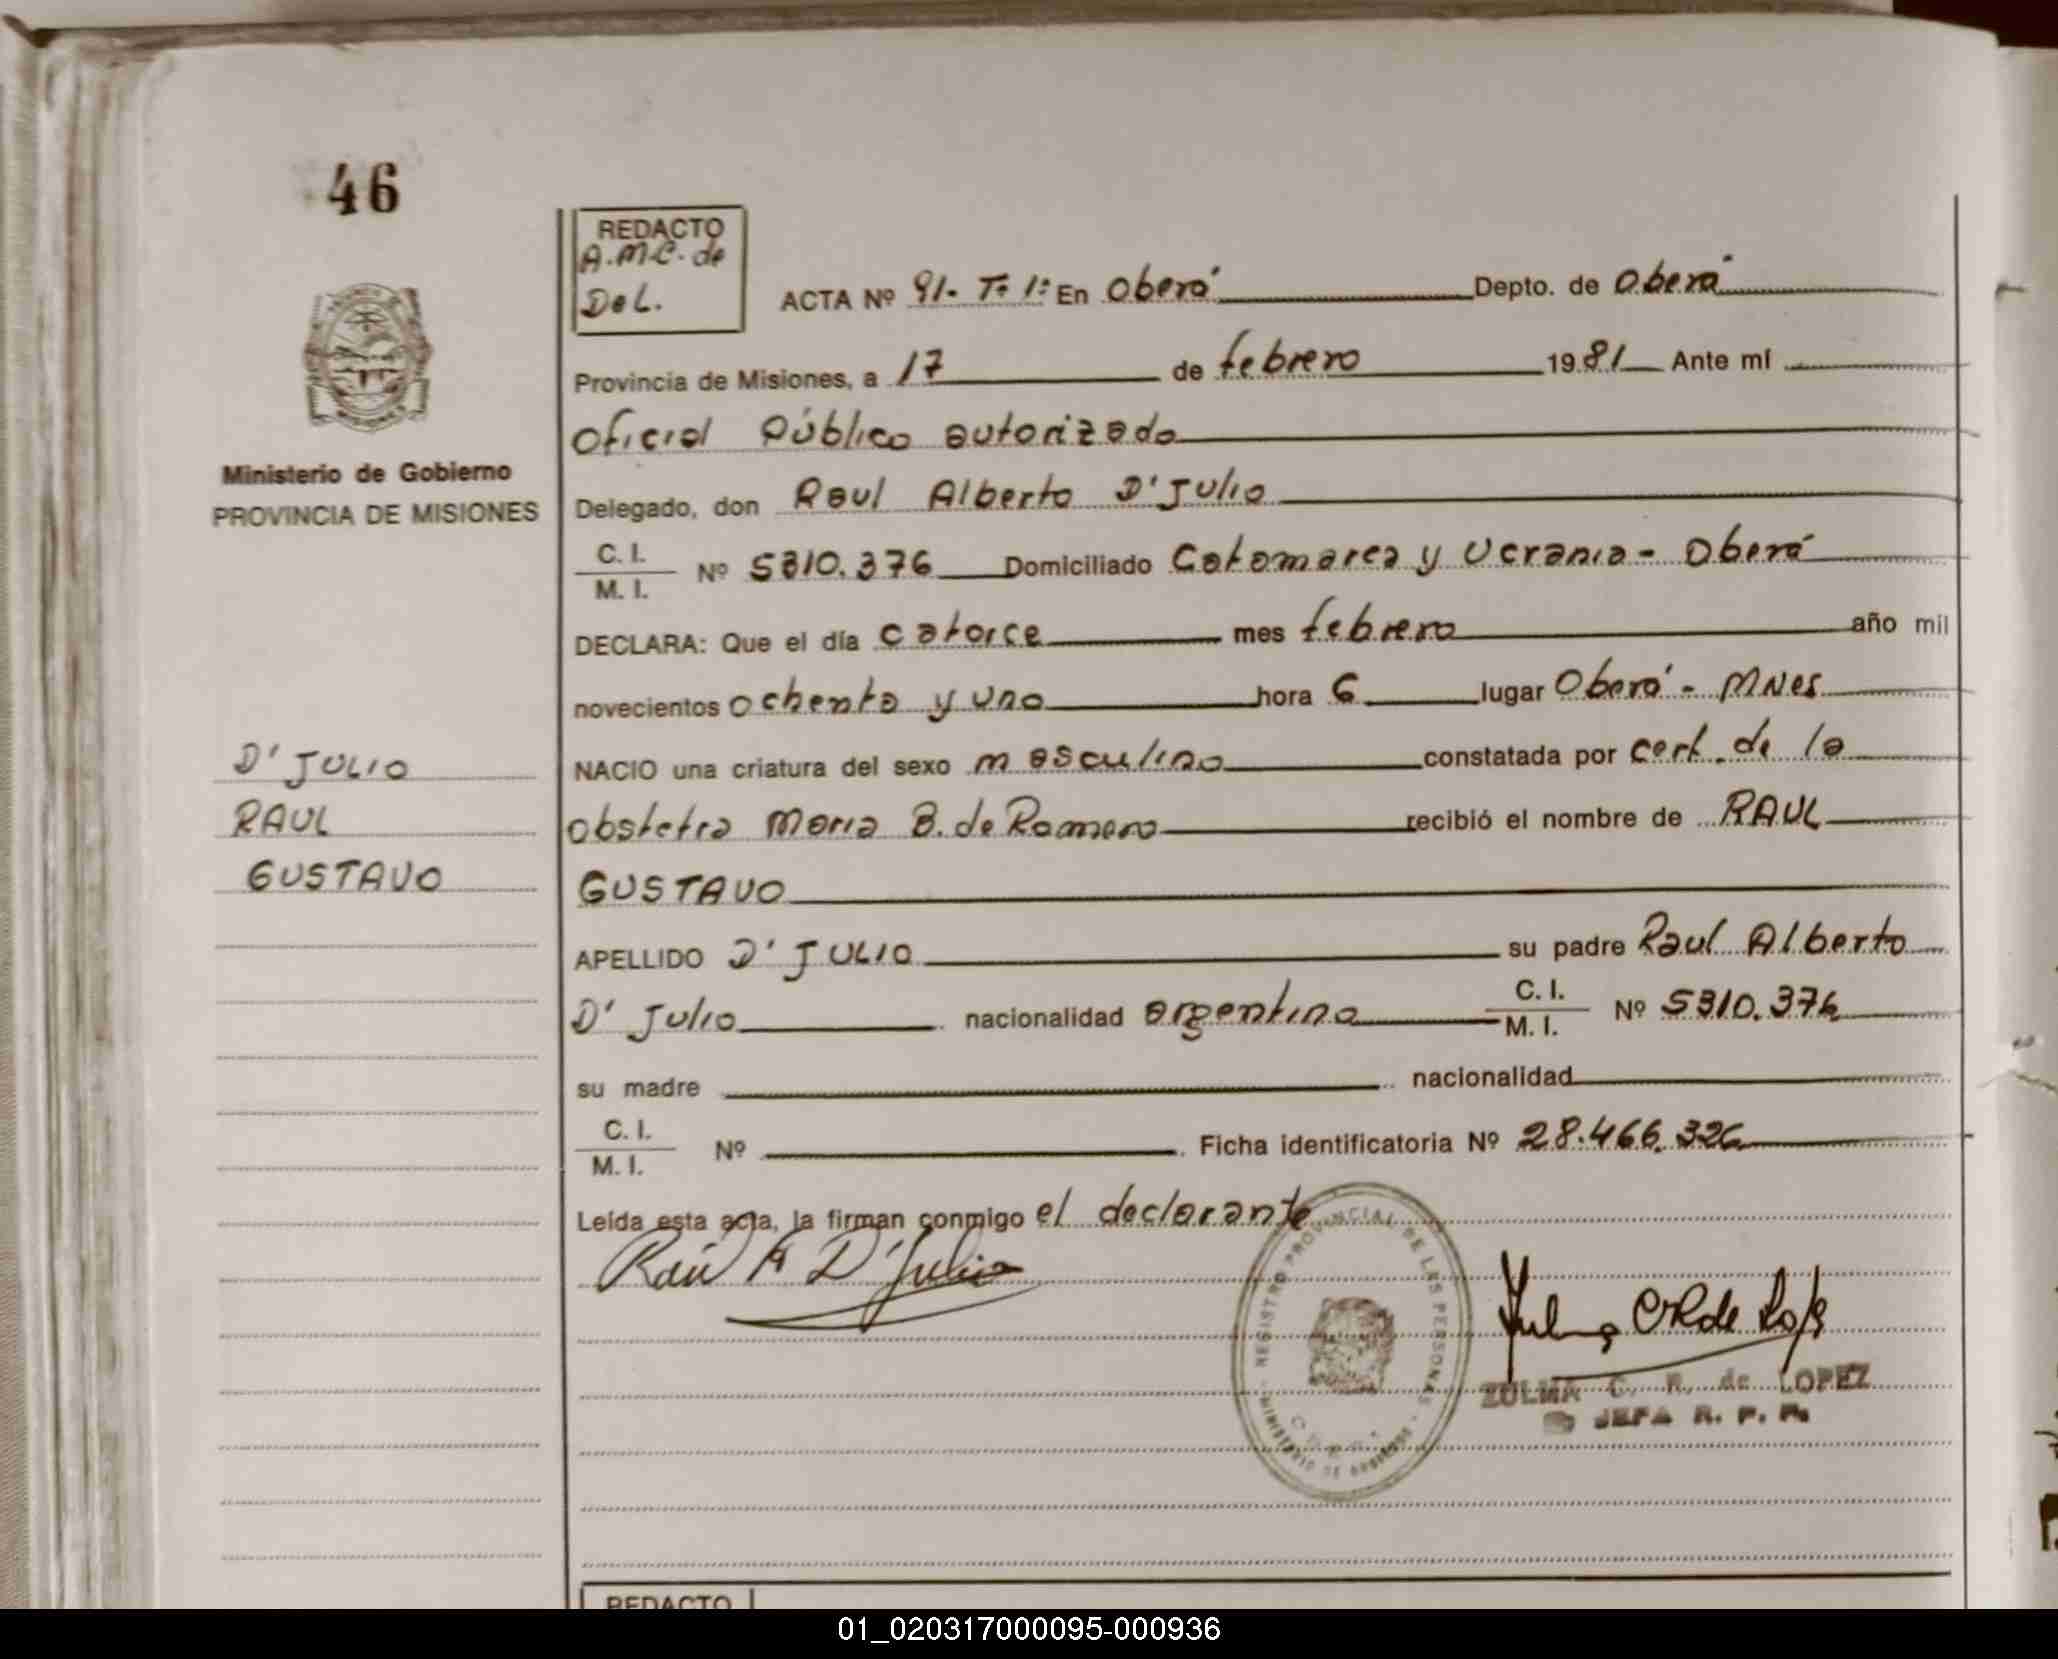 46
REDACTO
A.M.C. de
DeL.
ACTA Nº 91. Tº 1º En Oberá Depto. de Oberá
Provincia de Misiones, a 17 de febrero 1981 Ante mí
Oficial Público autorizado
Ministerio de Gobierno
PROVINCIA DE MISIONES
Delegado, don Raul Alberto D'Julio
C. I.
M. I. Nº 5310.376 Domiciliado Catamarca y Ucrania - Oberá
DECLARA: Que el día catorce mes febrero año mil
novecientos ochenta y uno hora 6 lugar Oberá - Mnes
D' JULIO
RAUL
GUSTAVO
NACIO una criatura del sexo masculino constatada por cert. de la
obstetra Maria B. de Romero recibió el nombre de RAUL
GUSTAVO
APELLIDO D' JULIO su padre Raul Alberto
D' Julio nacionalidad argentina C. I. M. I. Nº 5310.376
su madre nacionalidad
C. I.
M. I. Nº Ficha identificatoria Nº 28.466.326
Leída esta acta, la firman conmigo el declarante
Raúl A D'Julio
REGISTRO PROVINCIAL DE LAS PERSONAS
MINISTERIO DE GOBIERNO
ZULMA C. R. de LOPEZ
JEFA R. P. P.
REDACTO
01_020317000095-000936